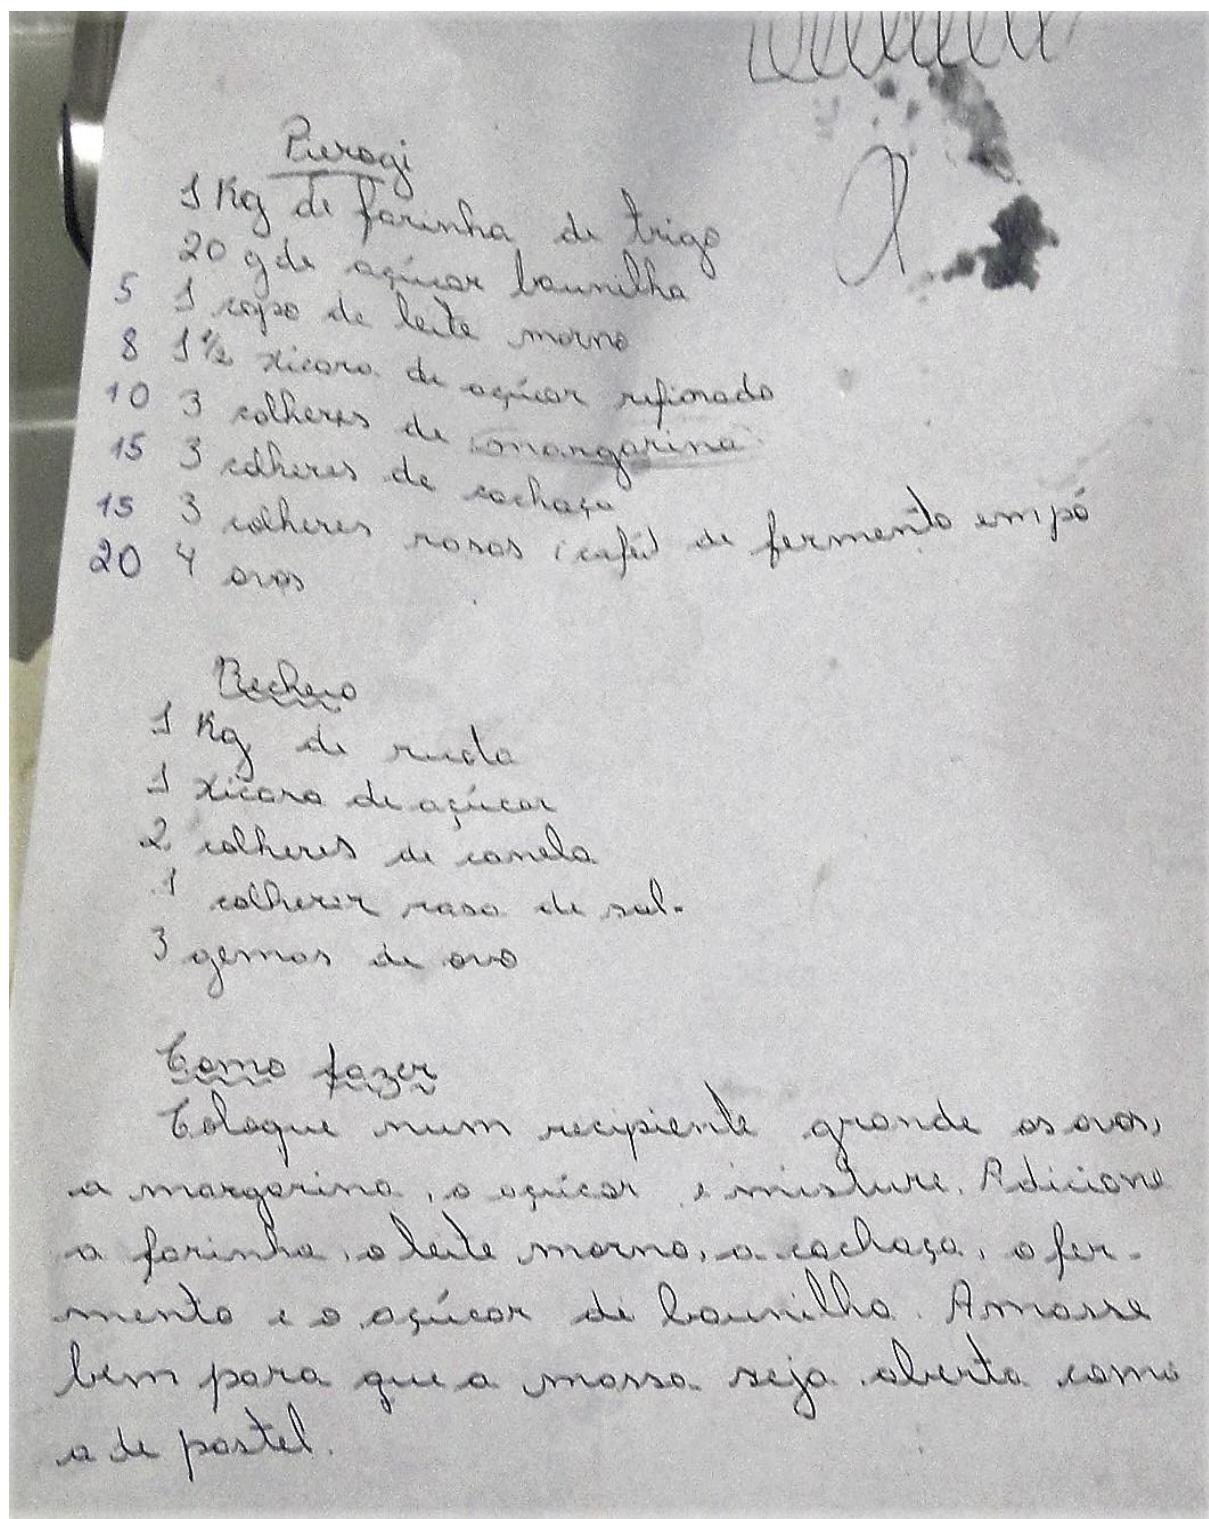 Pierogi
1 Kg de farinha de trigo
20 g de açúcar baunilha
5 1 copo de leite morno
8 1 1/2 xícara de açúcar refinado
10 3 colheres de (margarina)
15 3 colheres de cachaça
15 3 colheres rasas (café) de fermento em pó
20 4 ovos
Recheio
1 Kg de ricota
1 xícara de açúcar
2 colheres de canela
1 colherer rasa de sal.
3 gemas de ovo
Como fazer
Coloque num recipiente grande os ovos,
a margarina, o açúcar e misture. Adicione
a farinha, o leite morno, a cachaça, o fer-
mento e o açúcar de baunilha. Amasse
bem para que a massa seja aberta como
a de pastel.